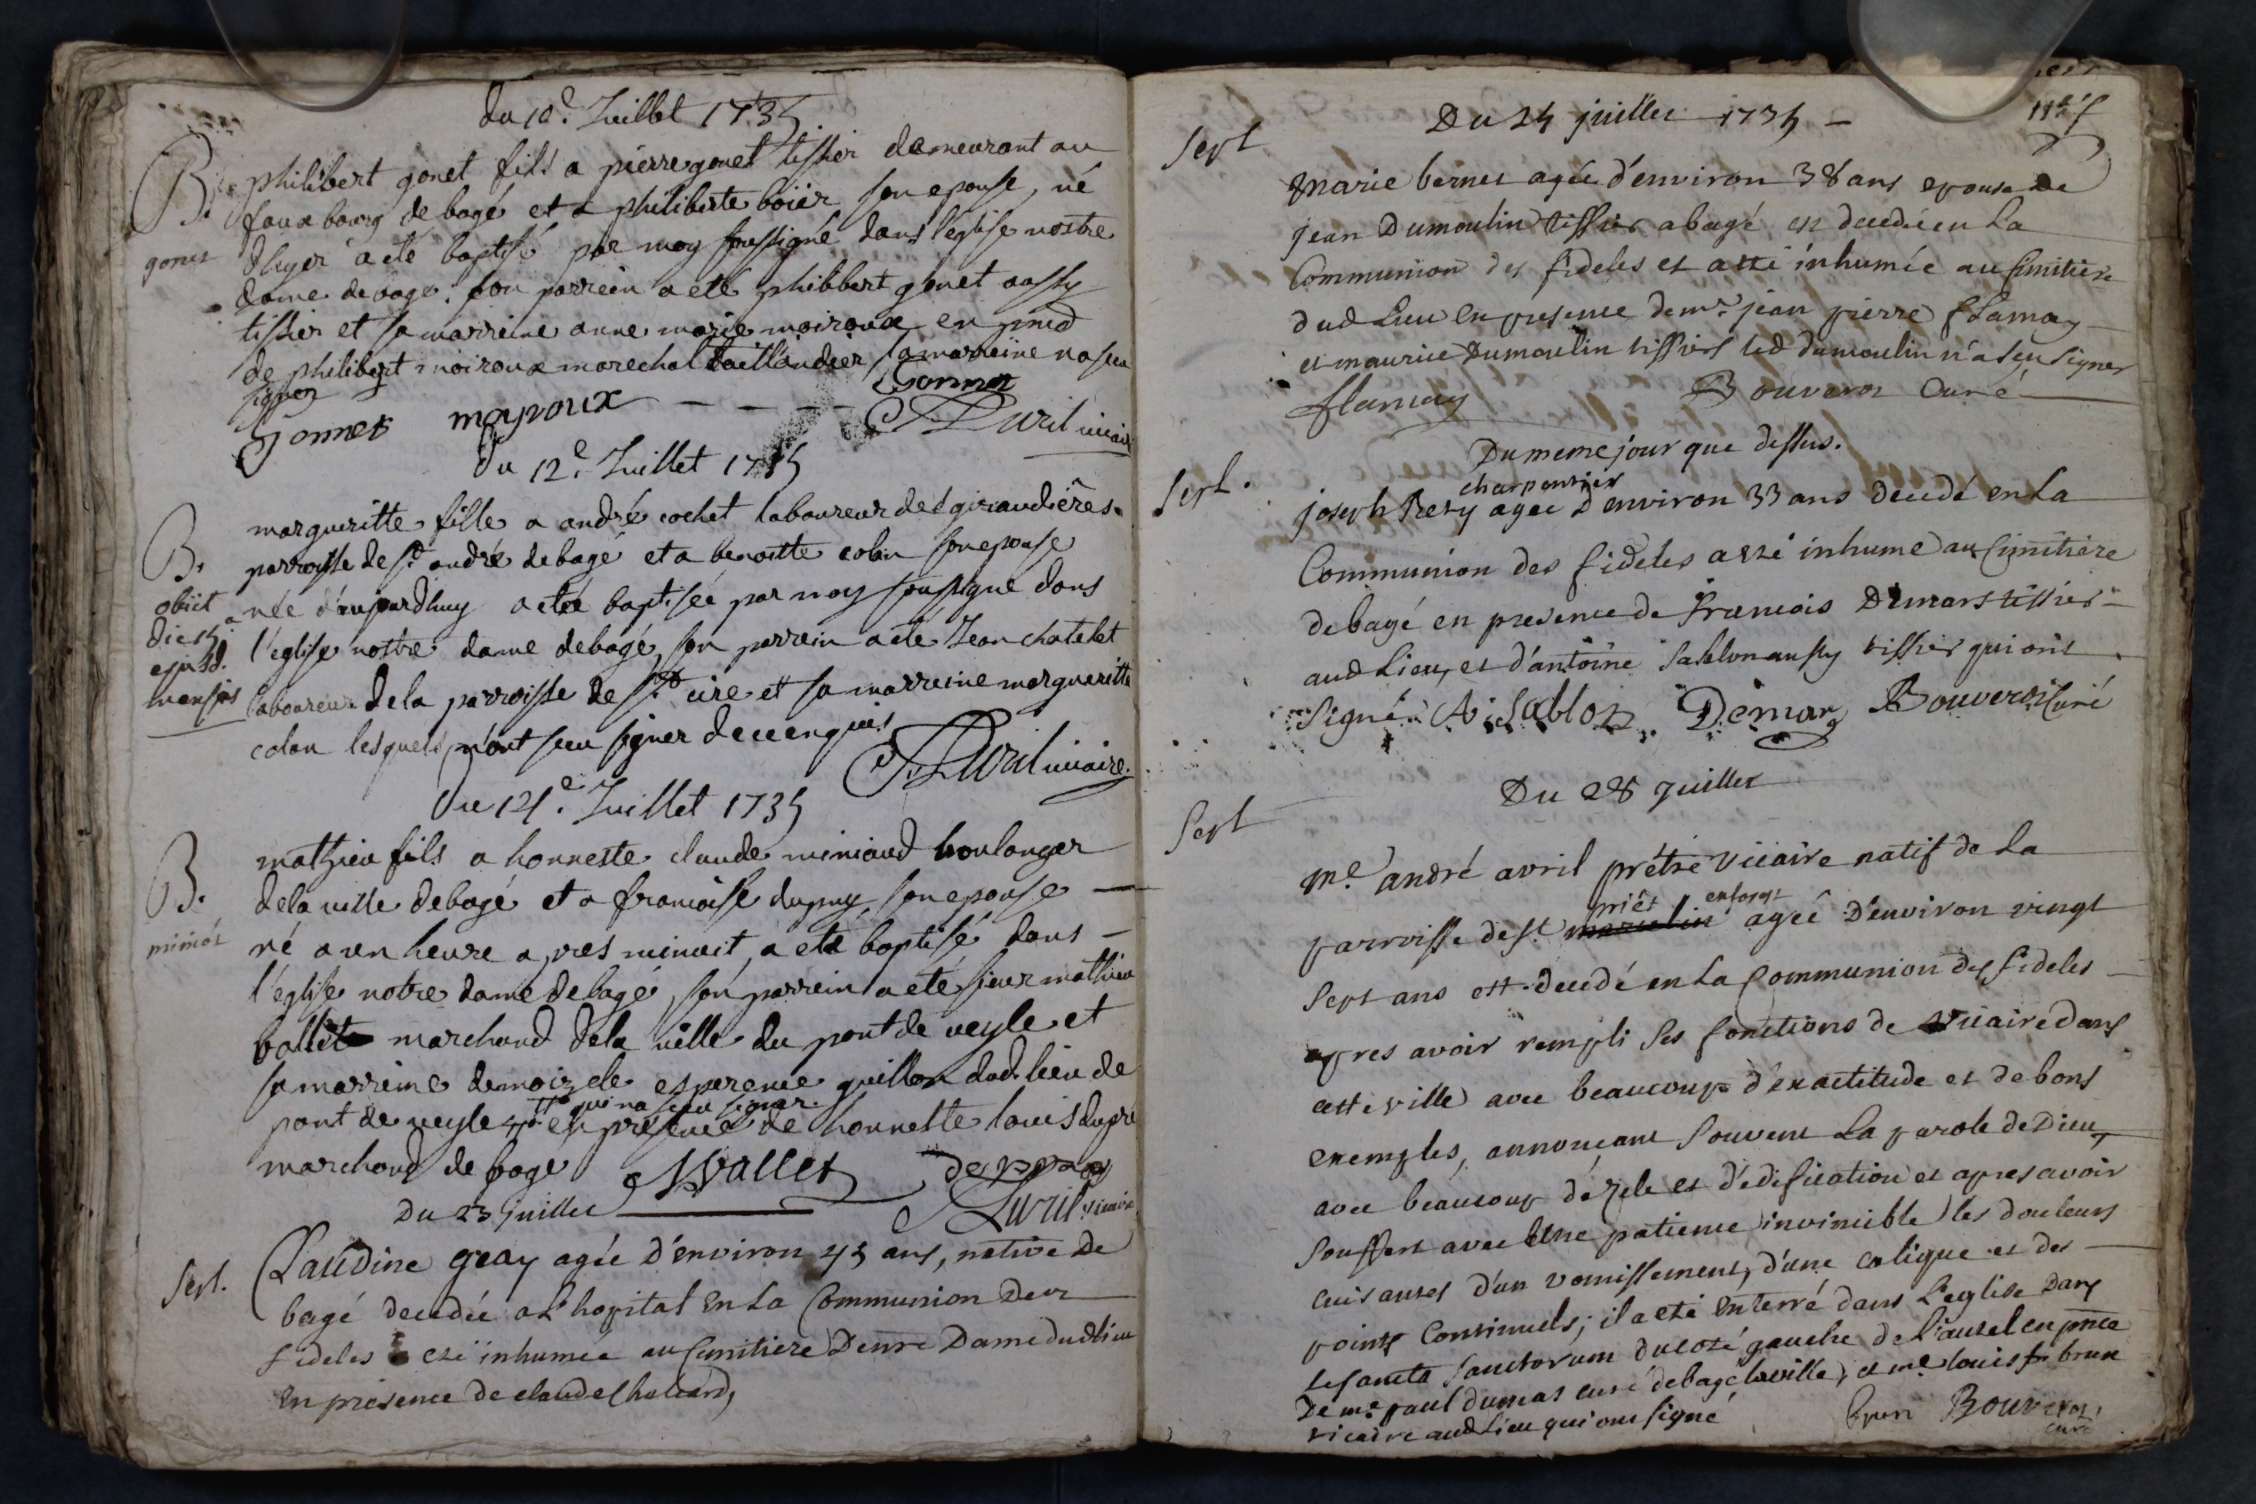 du 10e. Juillet 1735
B. philibert gonet fils a pierre gonet tissier demeurant au
faux bourg de bagé et a philiberte boiër son epouse, né
gonet d'hyer a eté baptisé par moy soussigné dans l'eglise nostre
dame de bagé. son parrein a eté philibbert gonet aussy
tissier et sa marreine anne marie moiroux en pnce
de philibert moiroux marechal taillandier sa marreine na sçeu
signer Gonnet
Gonnet moyroux Avril vicaire
du 12e. Juillet 1735
B. margueritte fille a andré cochet laboureur des giraudiêres
parroisse de st andré de bagé et a benoitte colon son epouse
obiit née d'aujourdhuy a eté baptisée par moy soussigné dans
die 15a l'eglise nostre dame de bagé, son parrein a eté Jean chatelet
ejusd. laboureur de la parroisse de st cire et sa marreine margueritte
mensis colon lesquels n'ont sceu signer de ce enquis
Avril vicaire.
Du 14e. Juillet 1735
B. mathieu fils a honneste claude miniaud boulanger
de la ville de bagé et a francoise dupuy son epouse
miniot né a un heure apres minuit, a eté baptisé dans
l'eglise notre dame de bagé, son parrein a eté sieur mathieu
vallet marchand de la ville du pont de veyle et
sa marreine demoizele esperence guillon dud. lieu de
qui na sceu signer
pont de veyle en presence de honneste louis dupui
marchand de bagé Mvallet
Du 23 juillet Avril vicaire
Sept. Claudine geay agée d'environ 45 ans, native de
bagé decedée a L'hopital En La Communion Des
fideles eté inhumée au Cimitiere De nre Dame dudt lieu
En présence de claude Chanard,
1127
Du 24 juillet 1735
Sept Marie bernet agée d'environ 38 ans epouse de
jean Dumoulin tissier a bagé est decedée en La
Communion des fideles et a eté inhumée au Cimitiere
dud Lieu en presence de mr. jean pierre flamay
et maurice Dumoulin tissiers led dumoulin n'a sçu signer
flamay Bouverot Curé
Du meme jour que dessus.
charpentier
Sept. joseph Rezy agée D'environ 33 ans decedé en La
Communion des fideles a eté inhumé au Cimitière
de bagé en presence de francois Demars tissier
aud Lieu, et d'antoine Sablon aussy tissier qui ont
Signé A. Sablon Demar Bouverot Curé
Du 28 juillet
Sept me andré avril prétre vicaire natif de La
priêt en forest
parroisse de st marcelin agée D'environ vingt
sept ans est decedé en La Communion des fideles
apres avoir rempli ses fonctions de vicaire dans
cette ville avec beaucoup d'exactitude et de bons
exemples, annonçant Souvent La parole de Dieu,
avec beaucoup de zele et d'édification et apres avoir
Souffert avec Une patience invincible les douleurs
cuisantes d'un vomissement, d'une colique et des
points Continuels; il a eté Enterré dans L'eglise Dans
Le sancta Sanctorum du coté gauche de l'autel en pnce
De me. paul dumas curé de bagé la ville, et me louis brun
vicaire aud Lieu qui ont signé Brun Bouverot
curé